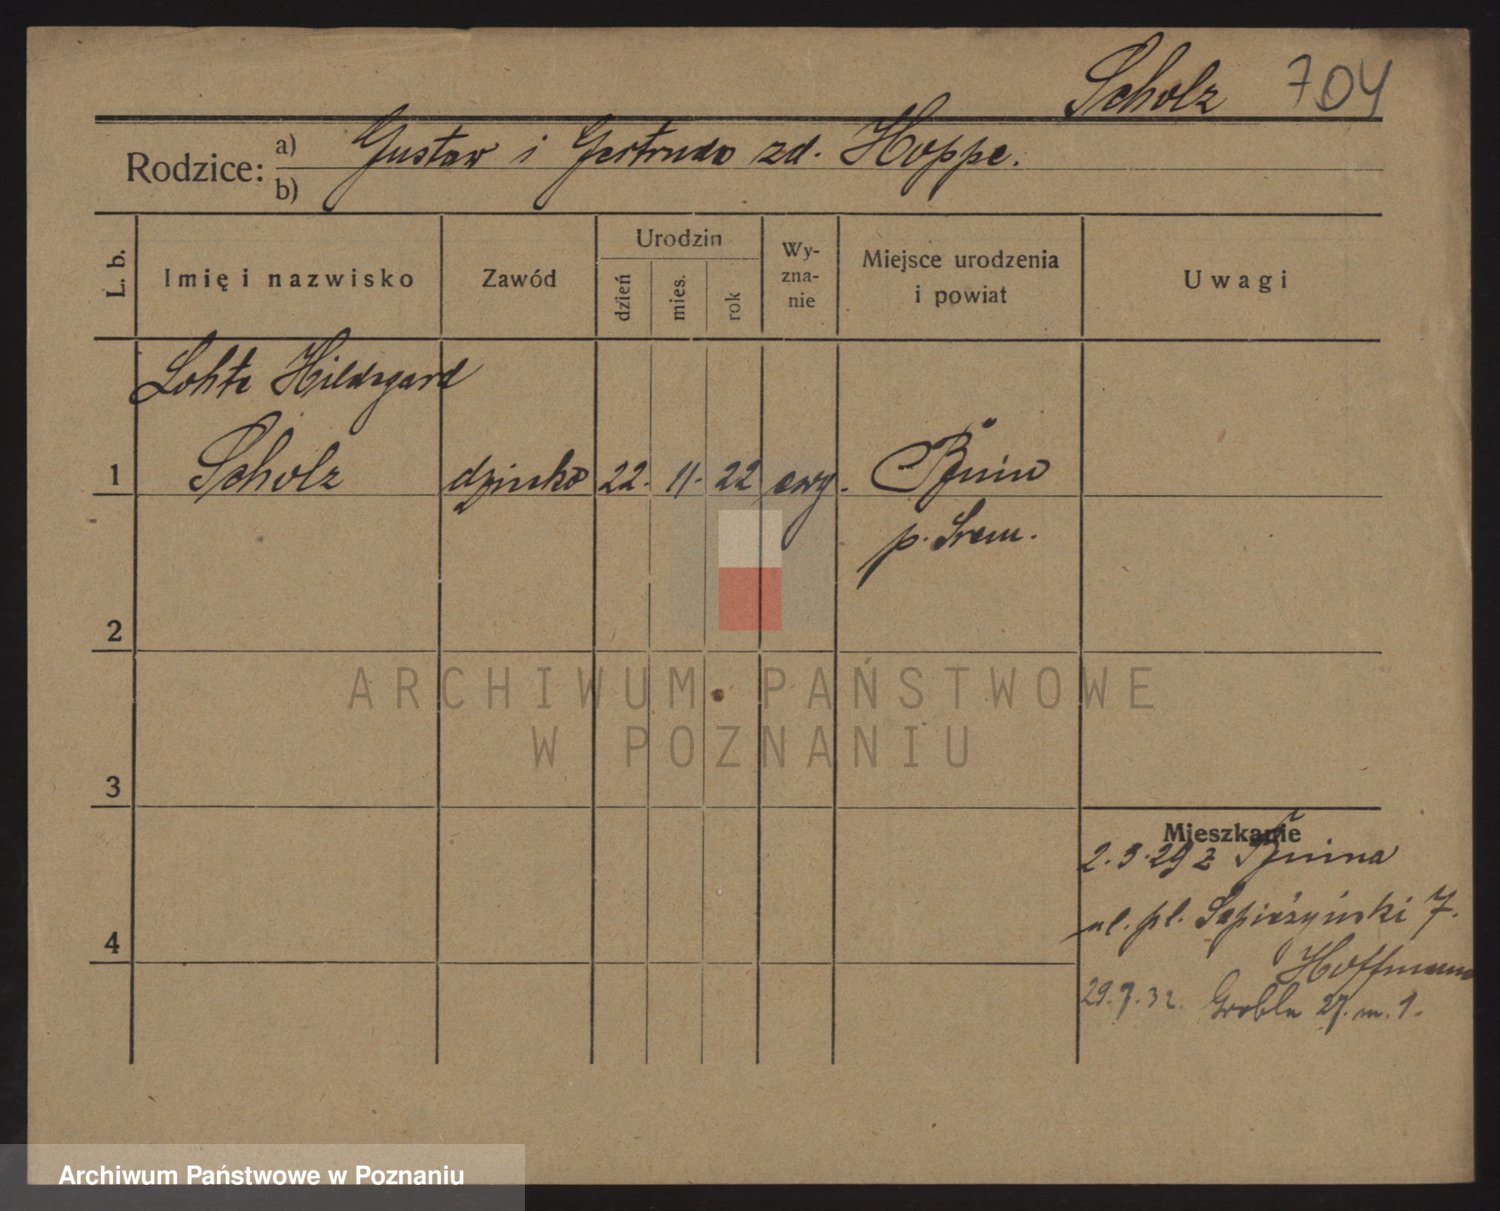 Scholz 704
Rodzice: a) Gustav i Gertruda zd. Hoppe.
b)
L. b.
Imię i nazwisko
Zawód
Urodzin
dzień
mies.
rok
Wy-
zna-
nie
Miejsce urodzenia
i powiat
Uwagi
Lotte Hildegard
1 Scholz dziecko 22. 11. 22 ewg. Bnin
p. Śrem.
2
ARCHIWUM PAŃSTWOWE
W POZNANIU
3
Mieszkanie
2.3.29 z Bnina
ul. pl. Sapieżyński 7.
4
Hoffmann
29.7.32. Grobla 27. m. 1.
Archiwum Państwowe w Poznaniu